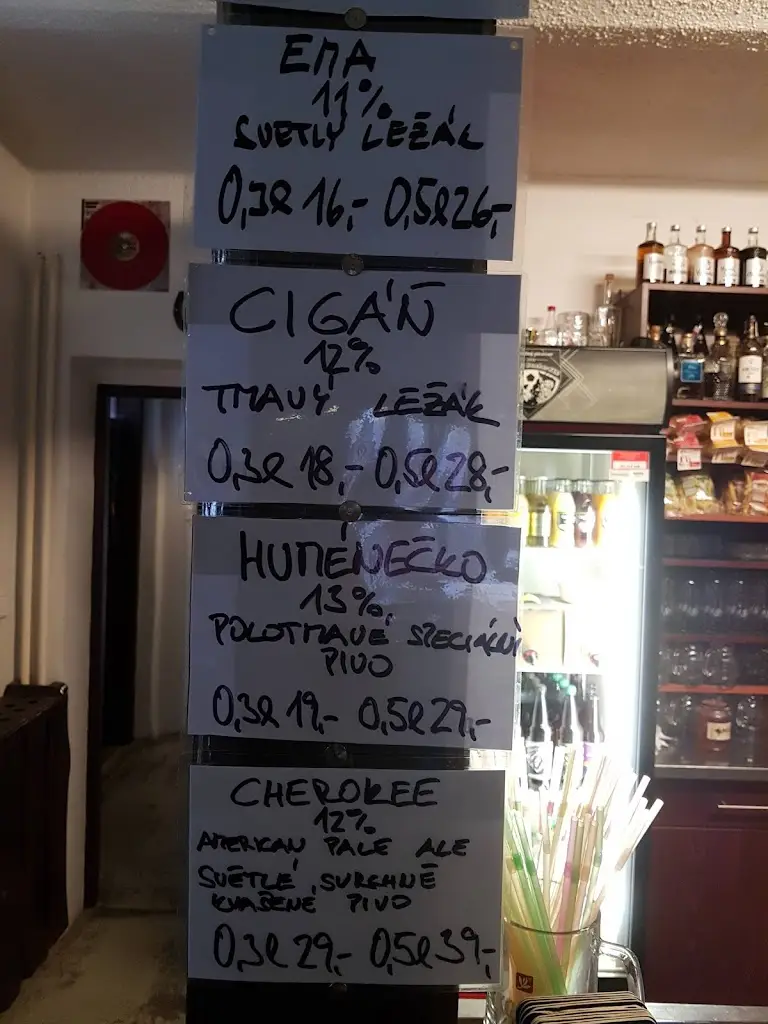 EMA
11%
SVĚTLÝ LEŽÁK
0,3l 16,- 0,5l 26,-
CIGÁŇ
12%
TMAVÝ LEŽÁK
0,3l 18,- 0,5l 28,-
HUMÉNEČKO
13%
POLOTMAVÉ SPECIÁLNÍ
PIVO
0,3l 19,- 0,5l 29,-
CHEROKEE
12%
AMERICAN PALE ALE
SVĚTLÉ, SVRCHNĚ
KVAŠENÉ PIVO
0,3l 29,- 0,5l 39,-